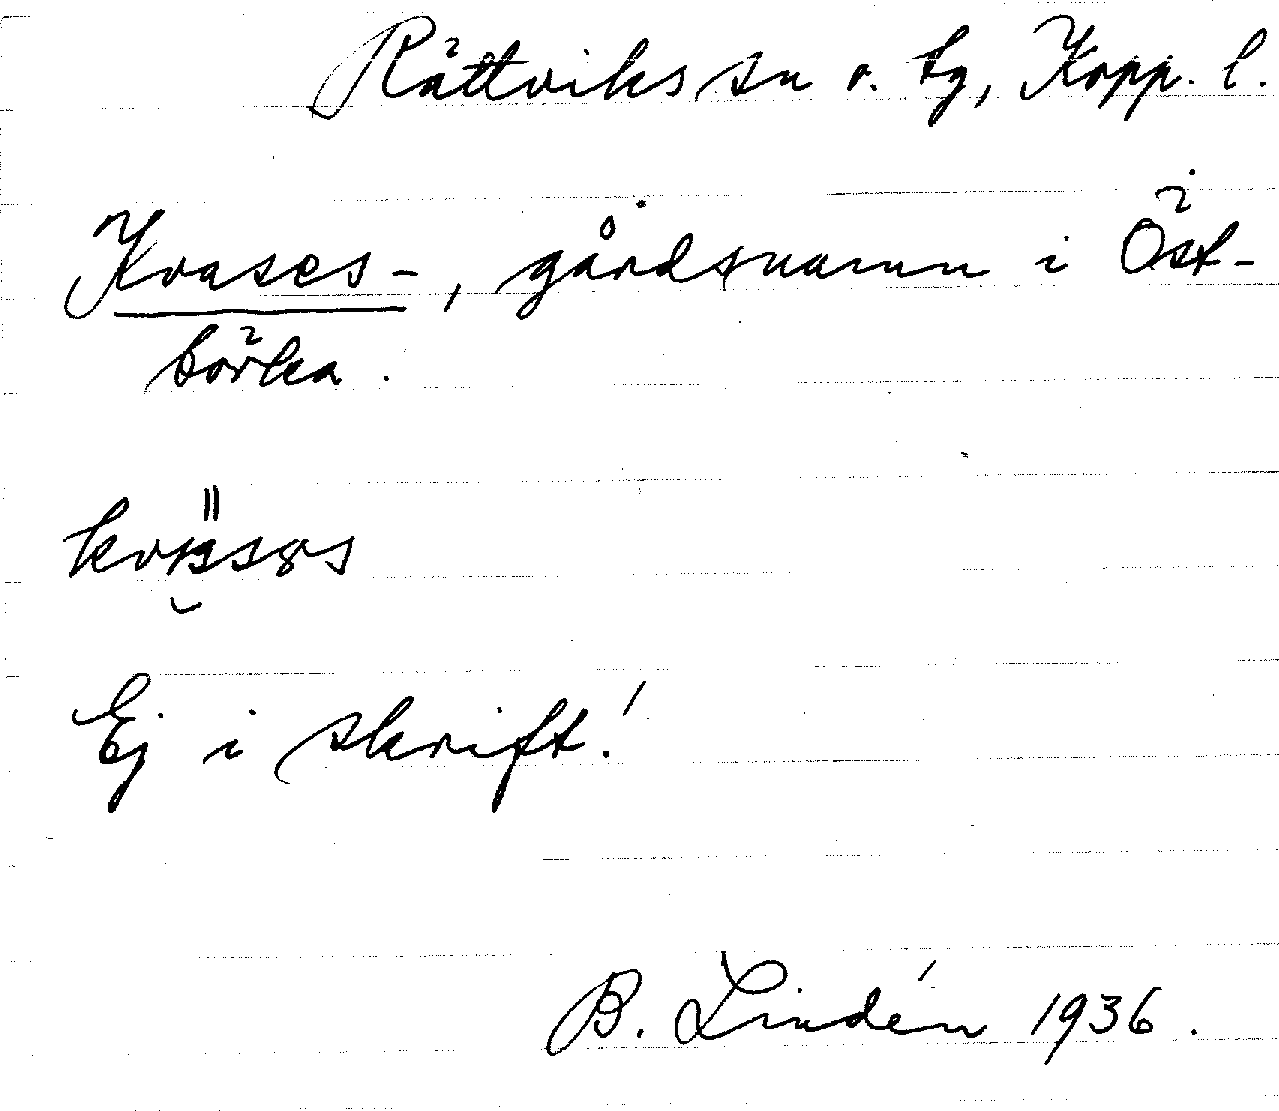 Rättviks sn o. tg, Kopp. l.
Kvases-, gårdsnamn i Öst-
börka.
Ej i skrift!
B. Lindén 1936.